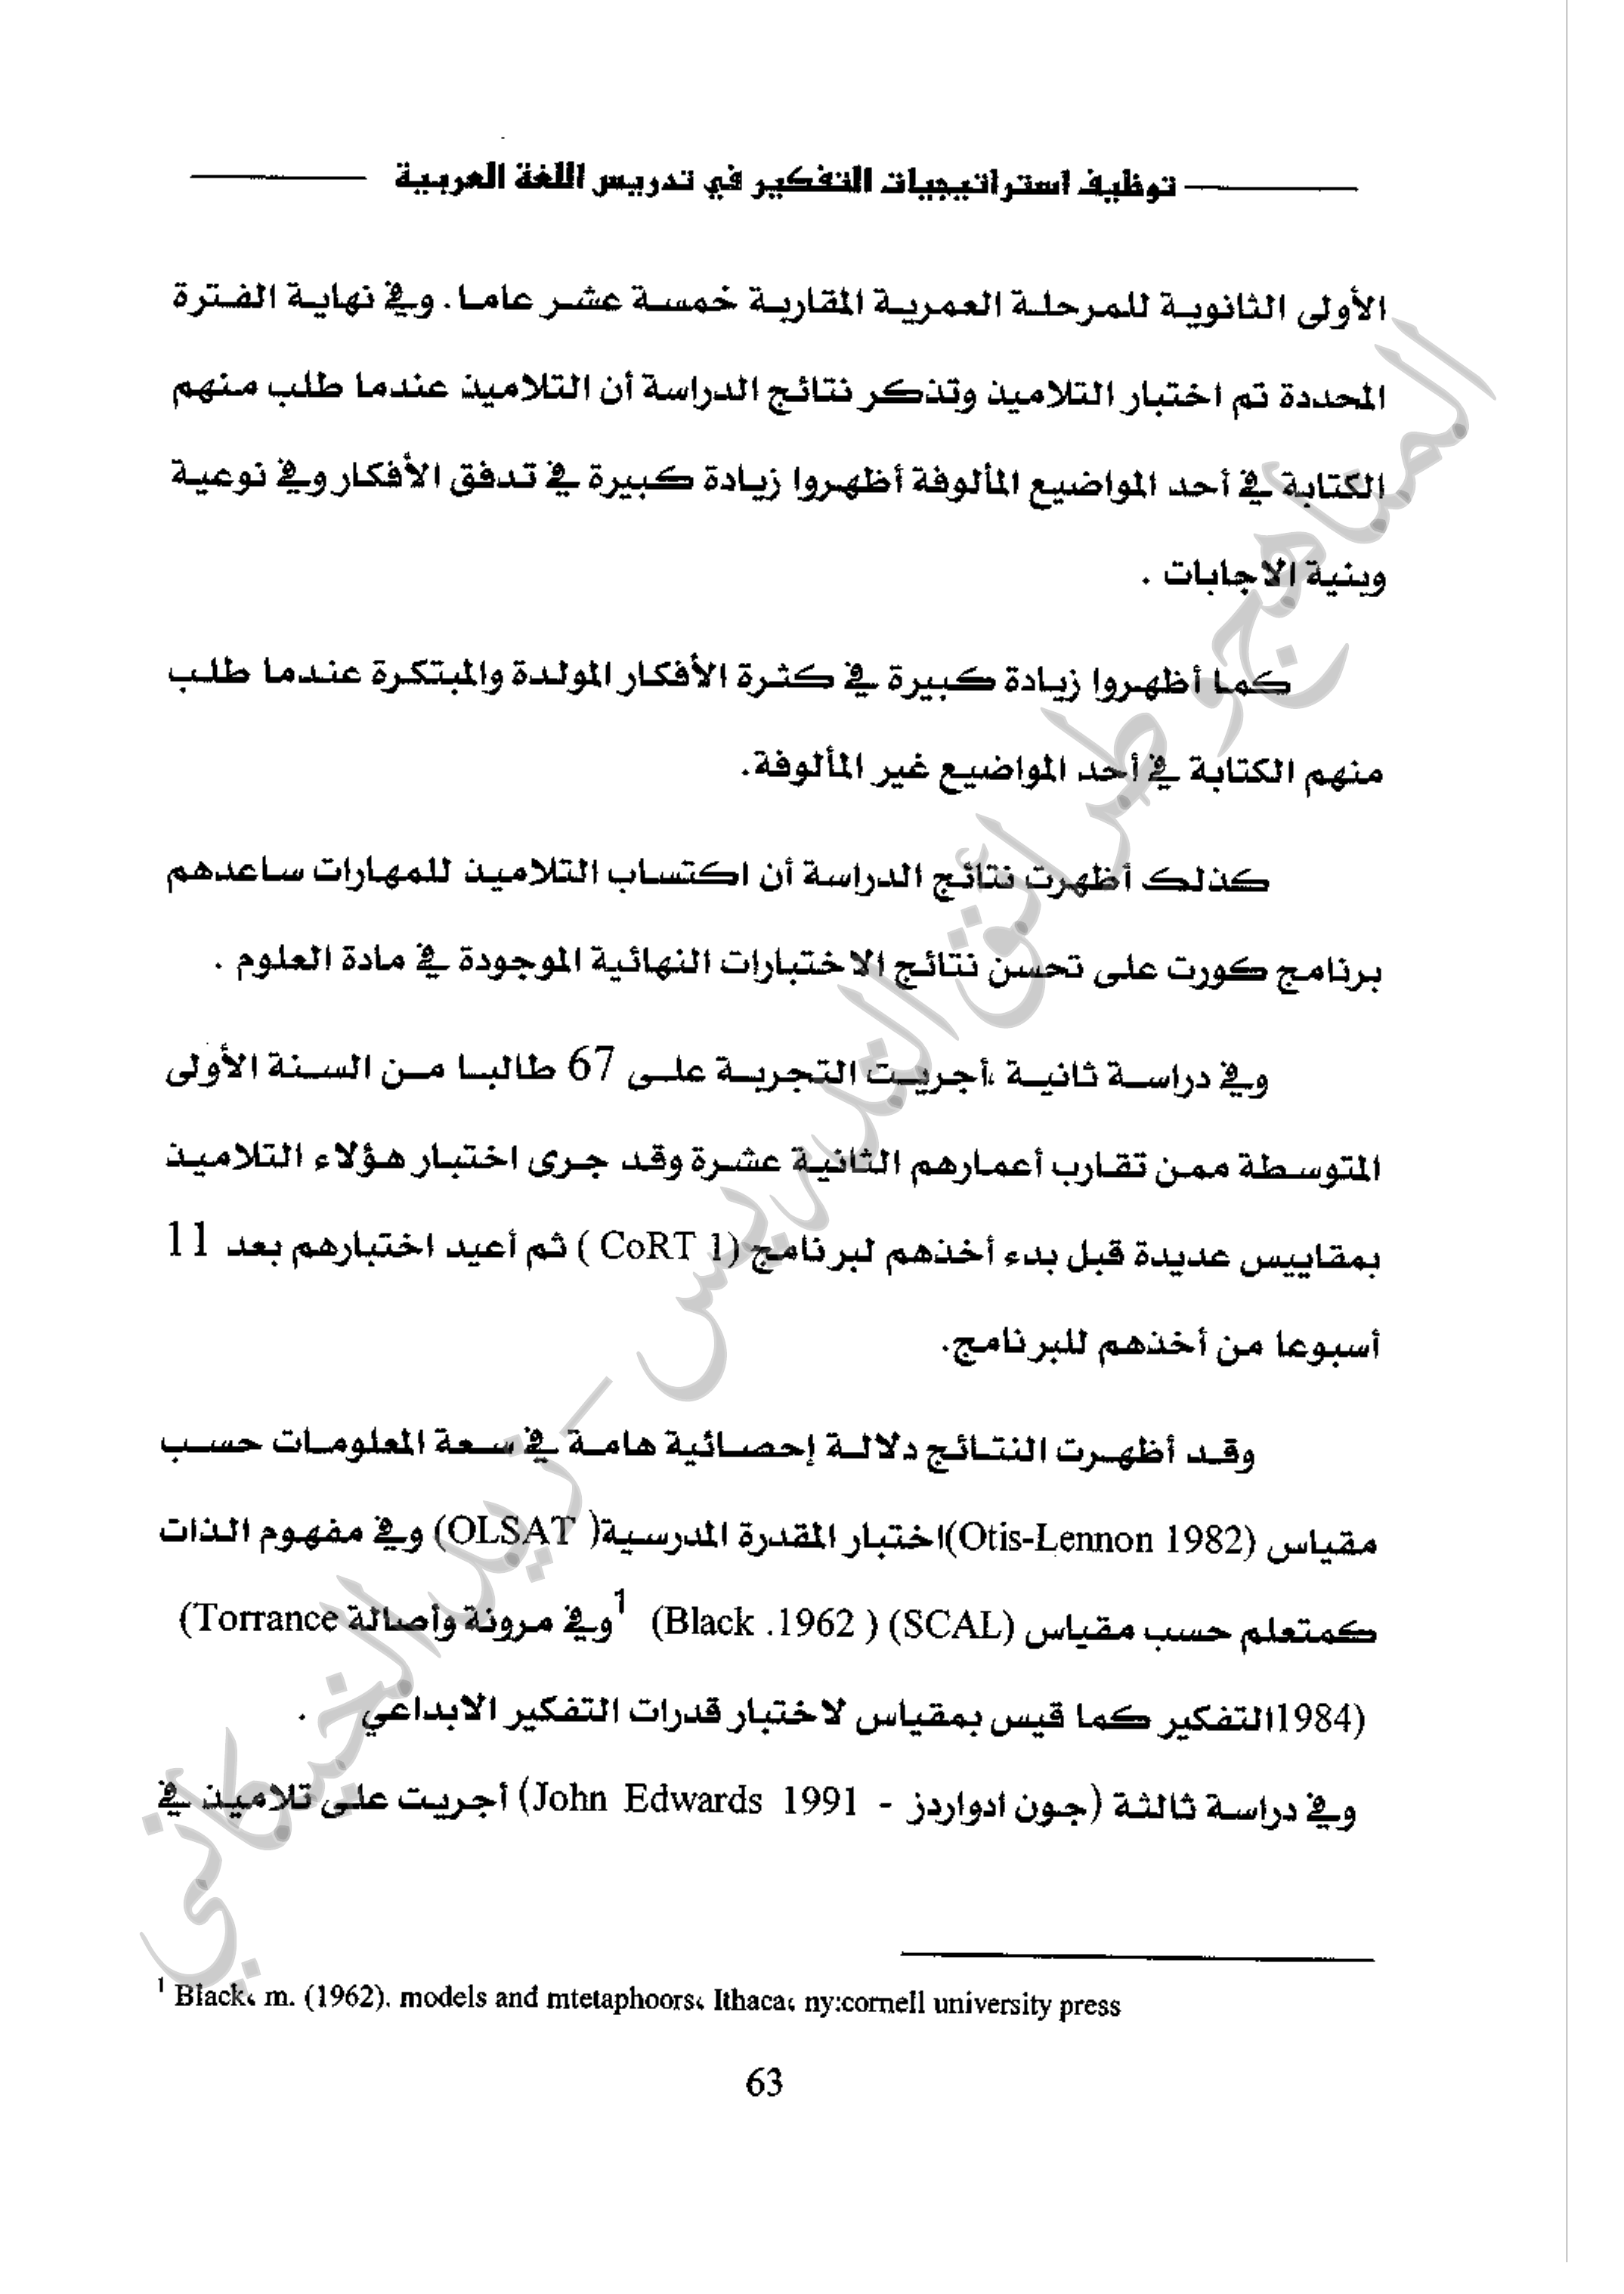 توظيف استراتيجيات التفكير في تدريس اللغة العربية
الأولى الثانوية للمرحلة العمرية المقاربة خمسة عشر عاما. وفي نهاية الفترة
المحددة تم اختبار التلاميذ وتذكر نتائج الدراسة أن التلاميذ عندما طلب منهم
الكتابة في أحد المواضيع المألوفة أظهروا زيادة كبيرة في تدفق الأفكار وفي نوعية
وبنية الاجابات .
كما أظهروا زيادة كبيرة في كثرة الأفكار المولدة والمبتكرة عندما طلب
منهم الكتابة في أحد المواضيع غير المألوفة.
كذلك أظهرت نتائج الدراسة أن اكتساب التلاميذ للمهارات ساعدهم
برنامج كورت على تحسن نتائج الاختبارات النهائية الموجودة في مادة العلوم .
وفي دراسة ثانية ،أجريت التجربة على 67 طالبا من السنة الأولى
المتوسطة ممن تقارب أعمارهم الثانية عشرة وقد جرى اختبار هؤلاء التلاميذ
بمقاييس عديدة قبل بدء أخذهم لبرنامج (CoRT 1 ) ثم أعيد اختبارهم بعد 11
أسبوعا من أخذهم للبرنامج.
وقد أظهرت النتائج دلالة إحصائية هامة في سعة المعلومات حسب
مقياس (Otis-Lennon 1982)اختبار المقدرة المدرسية( OLSAT) وفي مفهوم الذات
كمتعلم حسب مقياس (SCAL) ( Black .1962) 1وفي مرونة وأصالة Torrance)
(1984التفكير كما قيس بمقياس لاختبار قدرات التفكير الابداعي .
وفي دراسة ثالثة (جون ادواردز - John Edwards 1991) أجريت على تلاميذ في
1 Black، m. (1962). models and mtetaphoors، Ithaca، ny:cornell university press
63
المناهج وطرائق التدريس - زيد الخيكاني